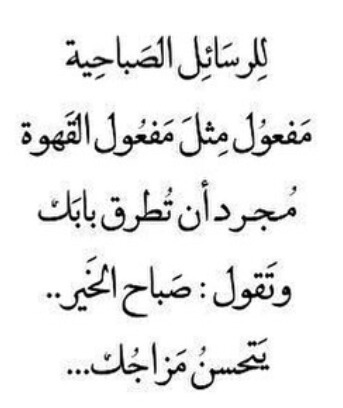 لِلرسَائِل الصَباحِية
مَفعوُل مِثلَ مَفعُول القَهوة
مُجرد أن تُطرق بابَك
وتَقول : صَباح الخَير..
يَتحسنُ مَزاجُك...